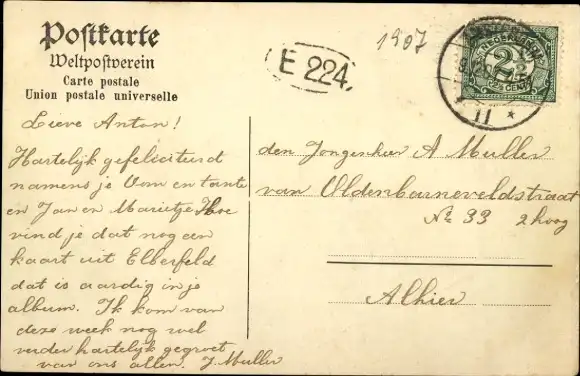 Postkarte
Weltpostverein
Carte postale
Union postale universelle
1907
E 224.
NEDERLAND
2½
2½ CENT
11 *
Lieve Anton!
Hartelijk gefeliciteerd
namens je Oom en tante
en Jan en Marietje. Hoe
vind je dat nog een
kaart uit Elberfeld
dat is aardig in je
album. Ik kom van
deze week nog wel
verder hartelijk gegroet
van ons allen. J. Muller
den Jongenheer A Muller
van Oldenbarneveldstraat
No 33 2 hoog
Alhier